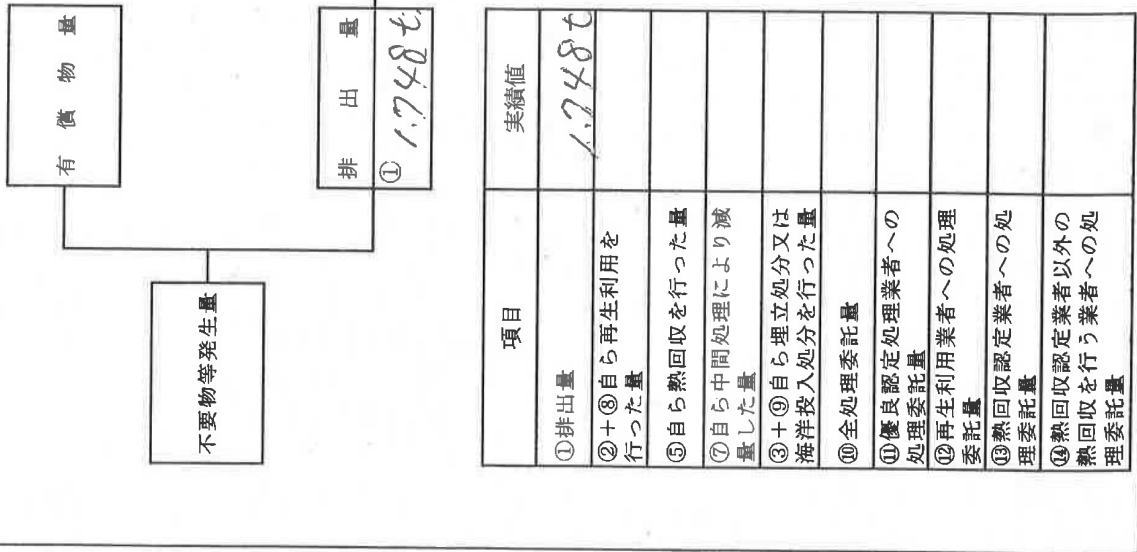 有償物量
不要物等発生量
排出量
① 1.748t
項目
実績値
①排出量
1.748t
②+⑧自ら再生利用を
行った量
⑤自ら熱回収を行った量
⑦自ら中間処理により減
量した量
③+⑨自ら埋立処分又は
海洋投入処分を行った量
⑩全処理委託量
⑪優良認定処理業者への
処理委託量
⑫再生利用業者への処理
委託量
⑬熱回収認定業者への処
理委託量
⑭熱回収認定業者以外の
熱回収を行う業者への処
理委託量